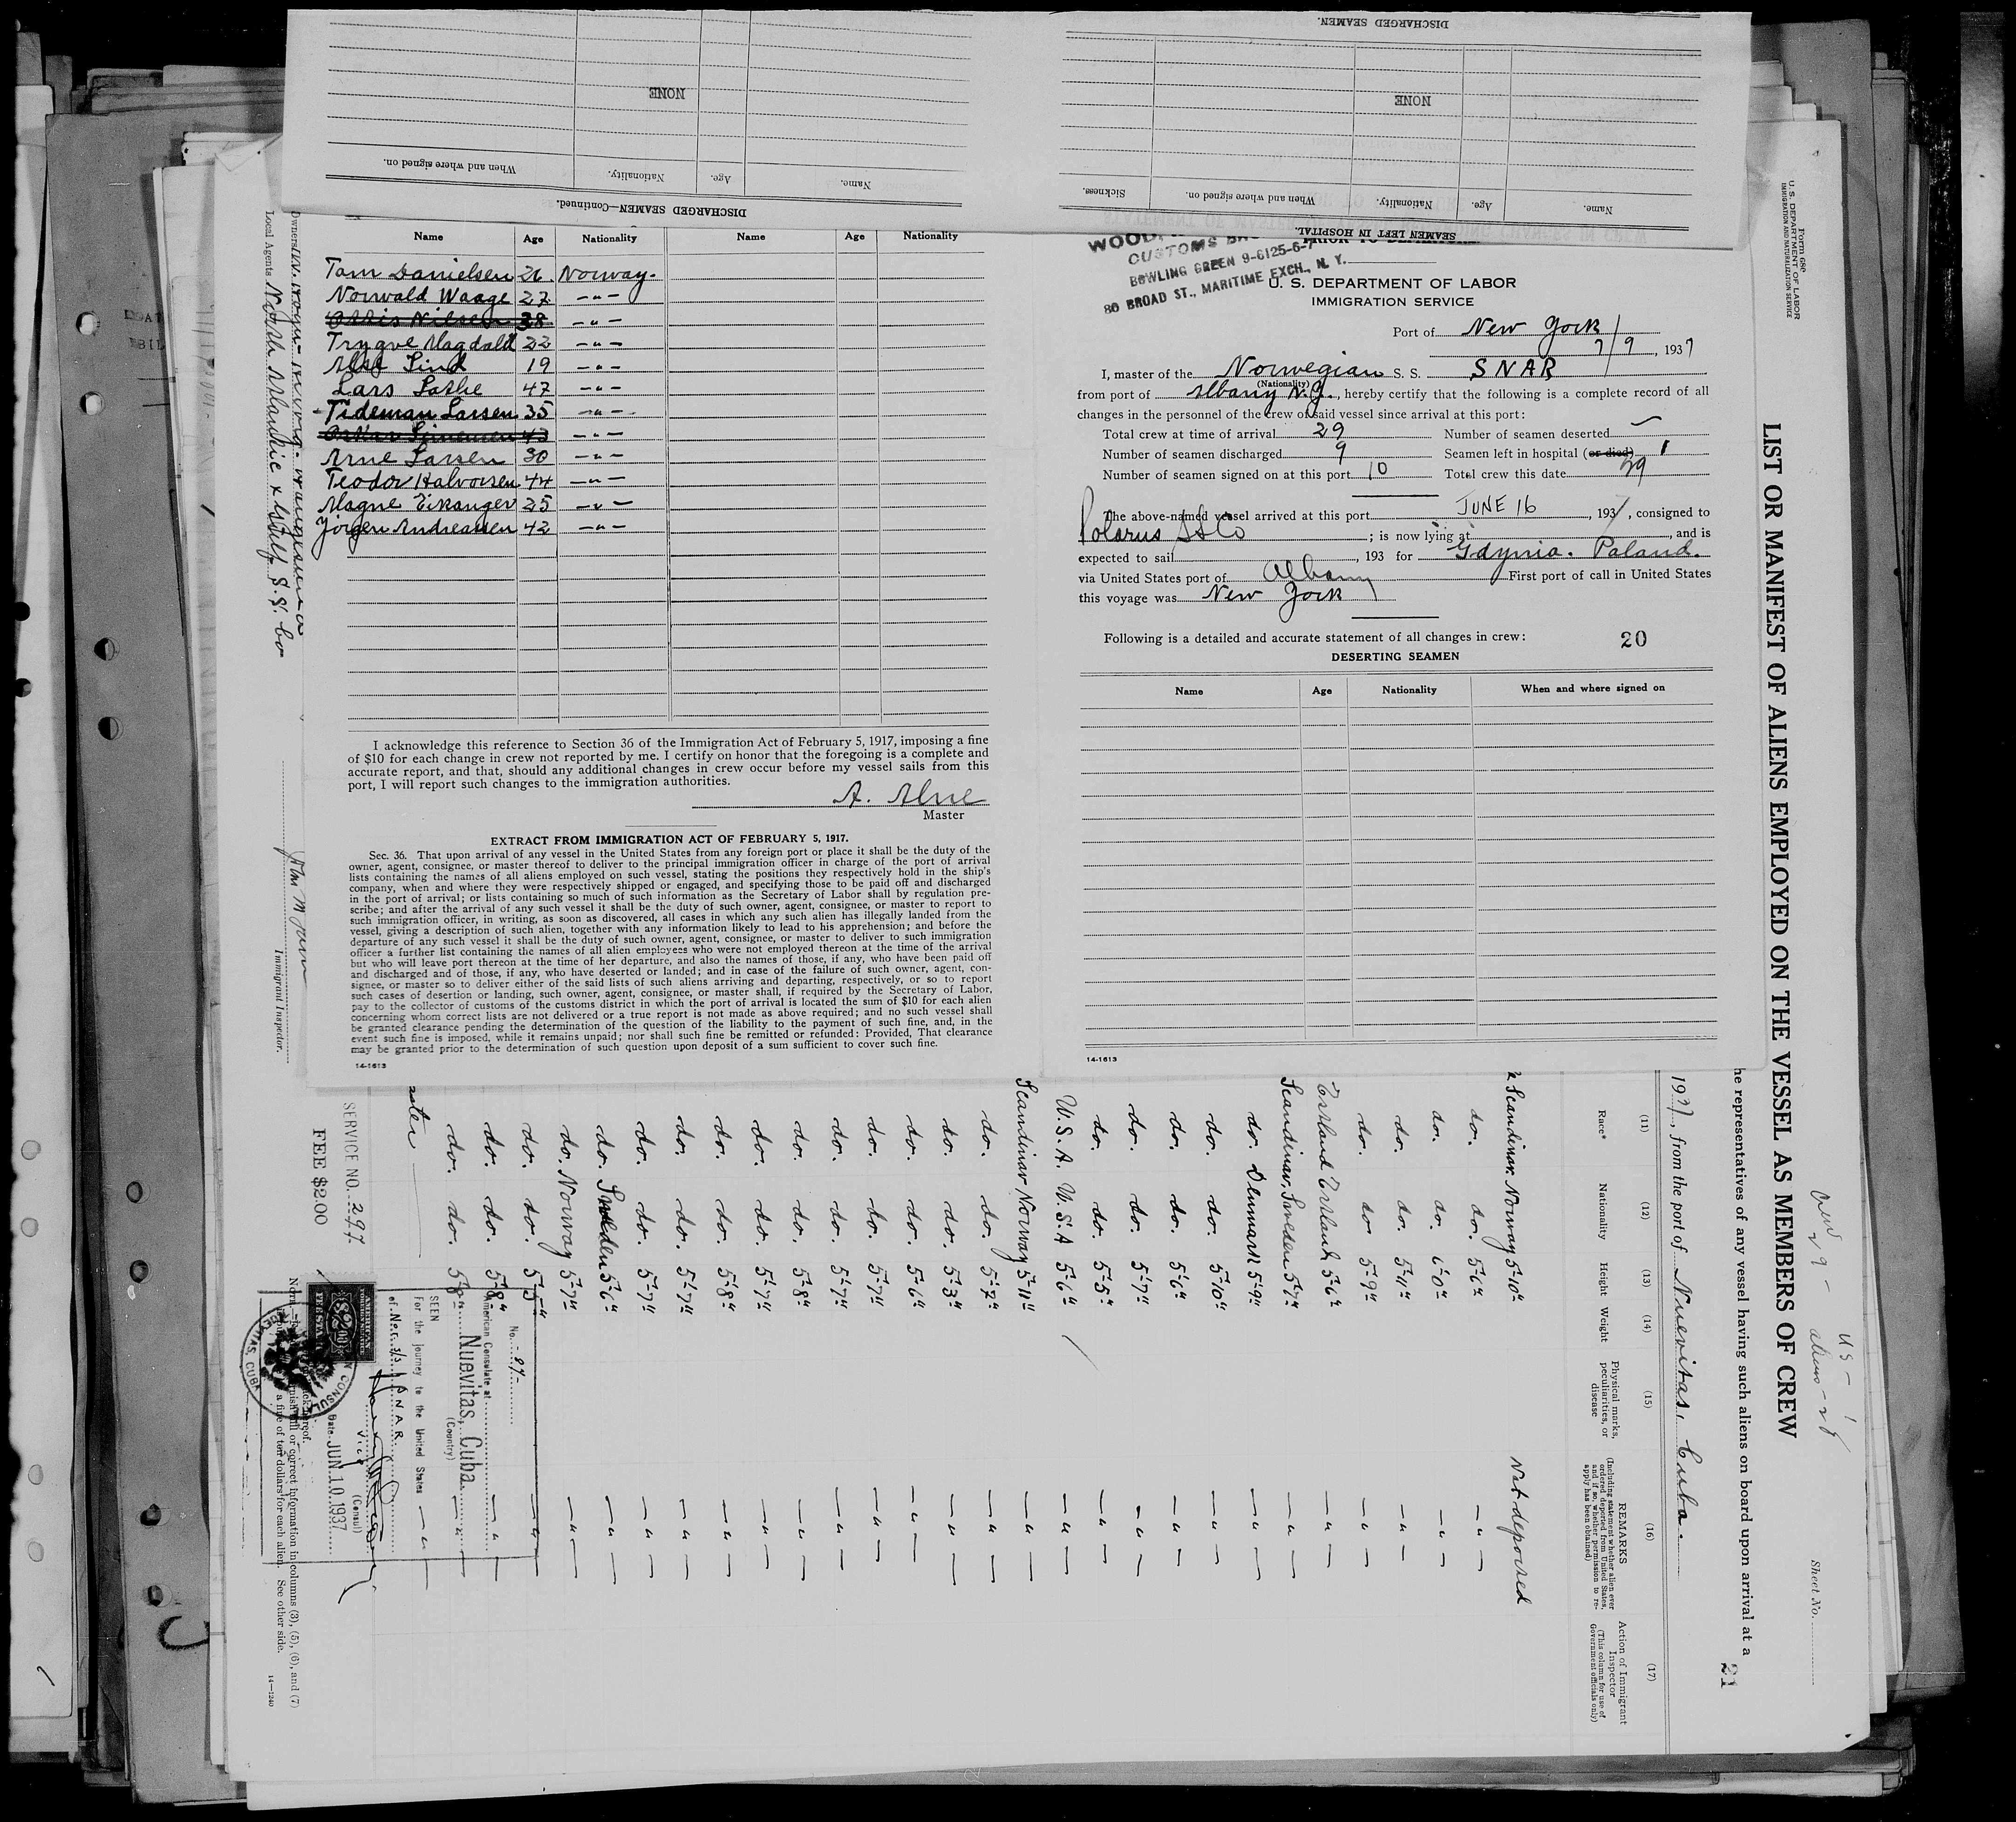 DISCHARGED SEAMEN—Continued.
Name. Age. Nationality. When and where signed on.
NONE
SEAMEN LEFT IN HOSPITAL.
Name. Age. Nationality. When and where signed on. Sickness.
NONE
DISCHARGED SEAMEN.
Name Age Nationality Name Age Nationality
Tom Danielsen 21. Norway.
Norvald Waage 27 —"—
Nilsen 38 —"—
Trygve Magdald 22 —"—
Lind 19 —"—
Lars Lothe 47 —"—
Tideman Larsen 35 —"—
43 —"—
Arne Larsen 30 —"—
Teodor Halvorsen 44 —"—
Magne Eikanger 25 —"—
Jörgen Andreassen 42 —"—
I acknowledge this reference to Section 36 of the Immigration Act of February 5, 1917, imposing a fine
of $10 for each change in crew not reported by me. I certify on honor that the foregoing is a complete and
accurate report, and that, should any additional changes in crew occur before my vessel sails from this
port, I will report such changes to the immigration authorities.
A. Alne
Master
EXTRACT FROM IMMIGRATION ACT OF FEBRUARY 5, 1917.
Sec. 36. That upon arrival of any vessel in the United States from any foreign port or place it shall be the duty of the
owner, agent, consignee, or master thereof to deliver to the principal immigration officer in charge of the port of arrival
lists containing the names of all aliens employed on such vessel, stating the positions they respectively hold in the ship's
company, when and where they were respectively shipped or engaged, and specifying those to be paid off and discharged
in the port of arrival; or lists containing so much of such information as the Secretary of Labor shall by regulation pre-
scribe; and after the arrival of any such vessel it shall be the duty of such owner, agent, consignee, or master to report to
such immigration officer, in writing, as soon as discovered, all cases in which any such alien has illegally landed from the
vessel, giving a description of such alien, together with any information likely to lead to his apprehension; and before the
departure of any such vessel it shall be the duty of such owner, agent, consignee, or master to deliver to such immigration
officer a further list containing the names of all alien employees who were not employed thereon at the time of the arrival
but who will leave port thereon at the time of her departure, and also the names of those, if any, who have been paid off
and discharged and of those, if any, who have deserted or landed; and in case of the failure of such owner, agent, con-
signee, or master so to deliver either of the said lists of such aliens arriving and departing, respectively, or so to report
such cases of desertion or landing, such owner, agent, consignee, or master shall, if required by the Secretary of Labor,
pay to the collector of customs of the customs district in which the port of arrival is located the sum of $10 for each alien
concerning whom correct lists are not delivered or a true report is not made as above required; and no such vessel shall
be granted clearance pending the determination of the question of the liability to the payment of such fine, and, in the
event such fine is imposed, while it remains unpaid; nor shall such fine be remitted or refunded: Provided, That clearance
may be granted prior to the determination of such question upon deposit of a sum sufficient to cover such fine.
14-1613
CUSTOMS
BOWLING GREEN 9-6125-6-7
80 BROAD ST., MARITIME EXCH., N. Y.
U. S. DEPARTMENT OF LABOR
IMMIGRATION SERVICE
Port of New York
7/9, 1937
I, master of the Norwegian S. S. SNAR
(Nationality)
from port of Albany N.Y., hereby certify that the following is a complete record of all
changes in the personnel of the crew of said vessel since arrival at this port:
Total crew at time of arrival 29 Number of seamen deserted —
Number of seamen discharged 9 Seamen left in hospital (or died) 1
Number of seamen signed on at this port 10 Total crew this date 29
The above-named vessel arrived at this port JUNE 16, 1937, consigned to
Polarus SS Co ; is now lying at , and is
expected to sail , 193 for Gdynia. Poland.
via United States port of Albany First port of call in United States
this voyage was New York
Following is a detailed and accurate statement of all changes in crew: 20
DESERTING SEAMEN
Name Age Nationality When and where signed on
14-1613
Form 680
U. S. DEPARTMENT OF LABOR
IMMIGRATION AND NATURALIZATION SERVICE
Crew 29 - US - 1
aliens - 28
Sheet No.
LIST OR MANIFEST OF ALIENS EMPLOYED ON THE VESSEL AS MEMBERS OF CREW
he representatives of any vessel having such aliens on board upon arrival at a
21
1937, from the port of Nuevitas, Cuba.
(11) (12) (13) (14) (15) (16) (17)
Race* Nationality Height Weight Physical marks, peculiarities, or disease
REMARKS (Including statement whether alien ever ordered deported from United States, and if so, whether permission to reapply has been obtained)
Action of Immigrant Inspector (This column for use of Government officials only)
Scandinav. Norway 5-10" Not deported
do. do. 5-6" —"—
do. do. 6-0" —"—
do. do. 5-11" —"—
do. do 5-9" —"—
Estland Estland 5-6" —"—
Scandinav. Sweden 5-7" —"—
do. Denmark 5-9" —"—
do. do. 5-10" —"—
do. do. 5-6" —"—
do. do. 5-7" —"—
do. do. 5-5" —"—
U.S.A. U.S.A 5-6" —"—
Scandinav Norway 5-11" —"—
do. do. 5-7" —"—
do. do. 5-3" —"—
do. do. 5-6" —"—
do. do. 5-7" —"—
do. do. 5-7" —"—
do. do. 5-8" —"—
do. do. 5-7" —"—
do. do. 5-8" —"—
do. do. 5-7" —"—
do. do. 5-7" —"—
do. Sweden 5-6" —"—
do. Norway 5-7" —"—
do. do. 5-5" —"—
do. do. 5-8" —"—
do. do. 5-8" —"—
No. 87-
American Consulate at
Nuevitas, Cuba.
(Country)
SEEN
For the journey to the United States
of Nor. s/s SNAR
Vice
(Consul)
Date JUN 10 1937
SERVICE NO. 297.
FEE $2.00
Local Agents North Atlantic & Gulf S.S. Co
Immigrant Inspector.
a fine of ten dollars for each alien. See other side.
14—1240